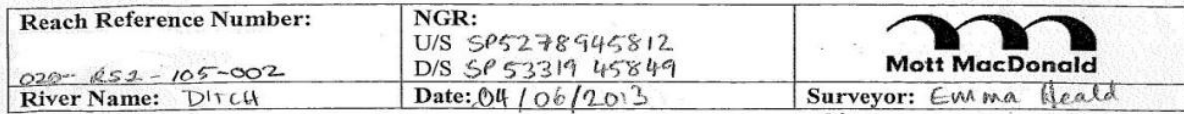 Reach Reference Number:
020-RS2-105-002
NGR:
U/S SP5278945812
D/S SP 53319 45849
Mott MacDonald
River Name: DITCH
Date: 04/06/2013
Surveyor: Emma Heald